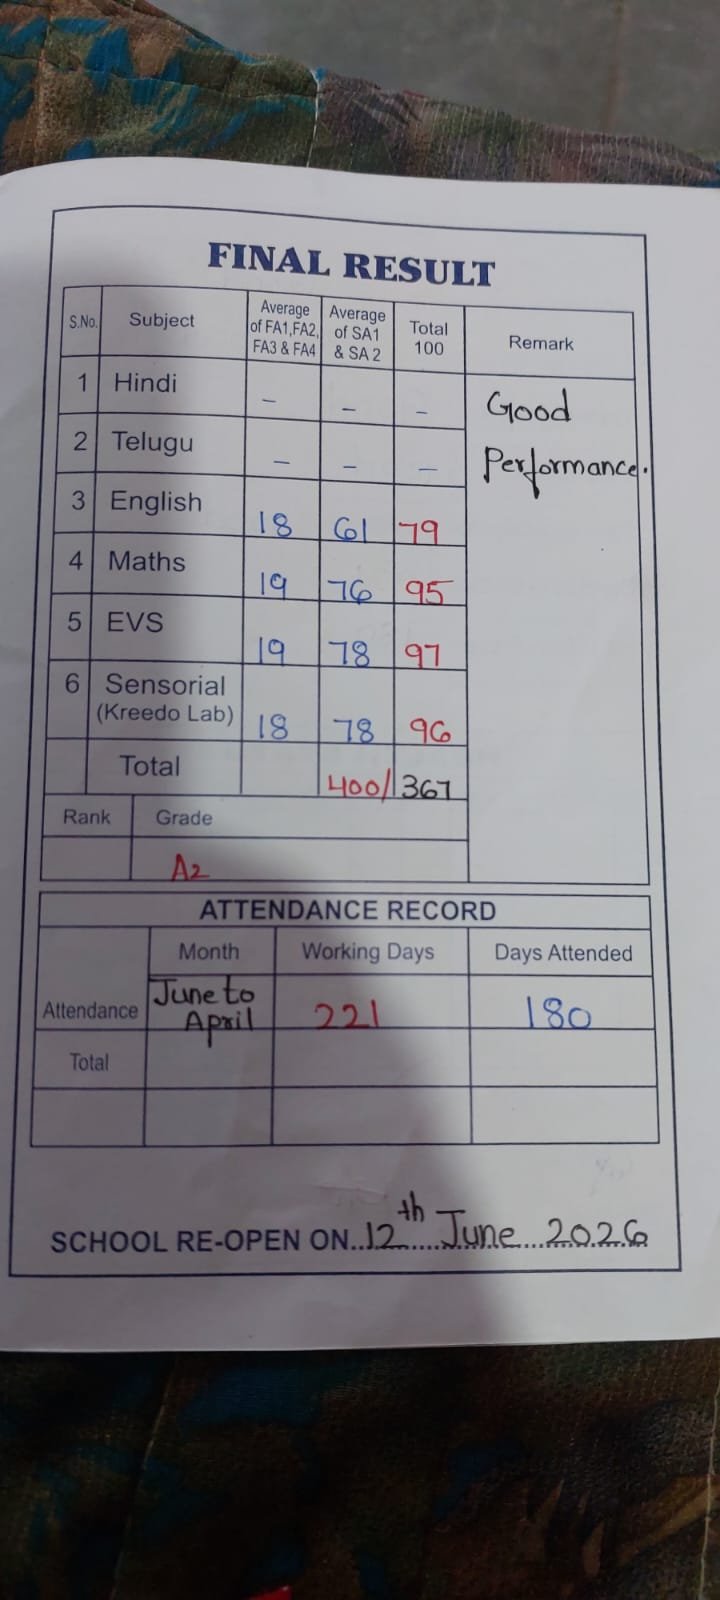 FINAL RESULT
S.No. Subject Average of FA1,FA2, FA3 & FA4 Average of SA1 & SA 2 Total 100 Remark
1 Hindi – – – Good
2 Telugu – – – Performance.
3 English 18 61 79
4 Maths 19 76 95
5 EVS 19 78 97
6 Sensorial (Kreedo Lab) 18 78 96
Total 400/ 367
Rank Grade
A2
ATTENDANCE RECORD
Month Working Days Days Attended
Attendance June to April 221 180
Total
SCHOOL RE-OPEN ON..12th June 2026